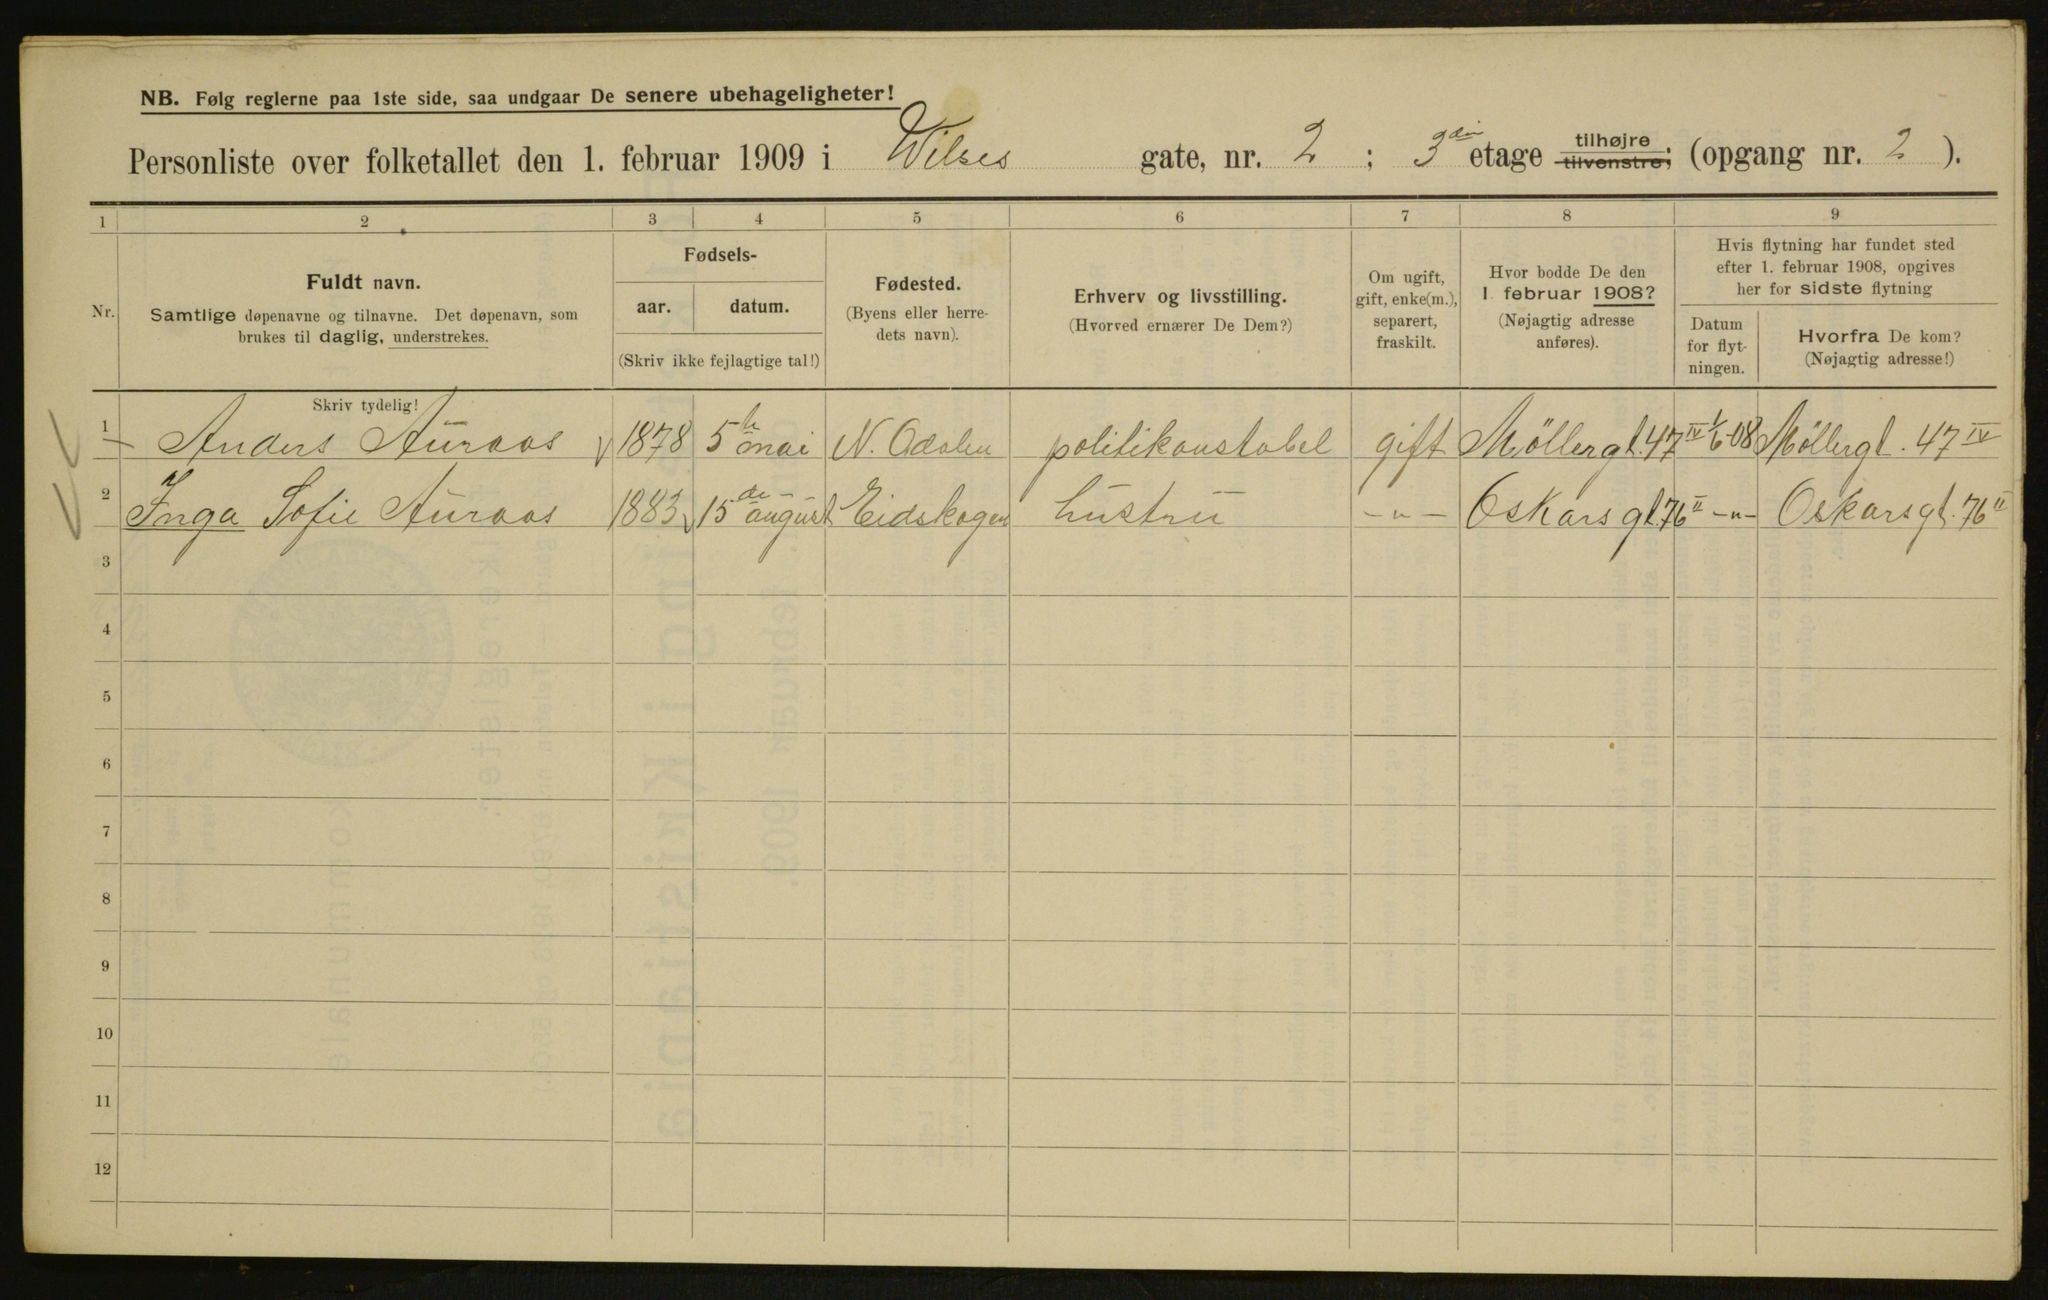 NB. Følg reglerne paa 1ste side, saa undgaar De senere ubehageligheter!
Personliste over folketallet den 1. februar 1909 i Wilses gate, nr. 2 ; 3die etage tilhøjre tilvenstre; (opgang nr. 2 ).
1 2 3 4 5 6 7 8 9
Nr.
Fuldt navn.
Samtlige døpenavne og tilnavne. Det døpenavn, som
brukes til daglig, understrekes.
Skriv tydelig!
Fødsels-
aar. datum.
(Skriv ikke fejlagtige tal!)
Fødested.
(Byens eller herre-
dets navn).
Erhverv og livsstilling.
(Hvorved ernærer De Dem?)
Om ugift,
gift, enke(m.),
separert,
fraskilt.
Hvor bodde De den
1. februar 1908?
(Nøjagtig adresse
anføres).
Hvis flytning har fundet sted
efter 1. februar 1908, opgives
her for sidste flytning
Datum
for flyt-
ningen.
Hvorfra De kom?
(Nøjagtig adresse!)
1 Anders Aŭraas 1878 5te mai N. Odalen politikonstabel gift Möllergt. 47 IV 1/6-08 Møllergt. 47 IV
2 Inga Sofie Aŭraas 1883 15de august Eidskogen hŭstrŭ -"- Oskarsgt. 76 II -"- Oskarsgt. 76 II
3
4
5
6
7
8
9
10
11
12